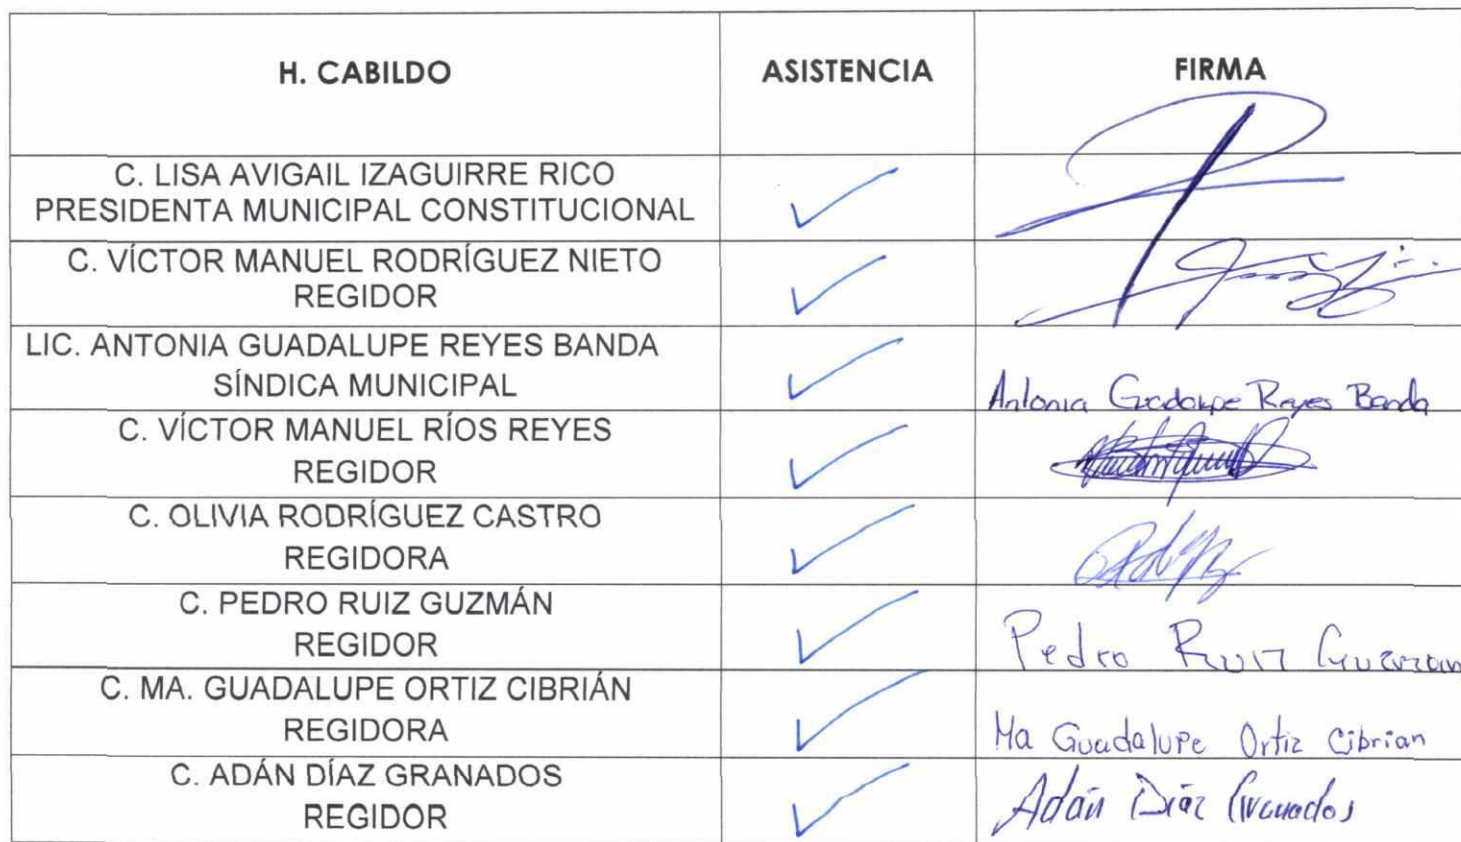 H. CABILDO ASISTENCIA FIRMA
C. LISA AVIGAIL IZAGUIRRE RICO
PRESIDENTA MUNICIPAL CONSTITUCIONAL
C. VÍCTOR MANUEL RODRÍGUEZ NIETO
REGIDOR
LIC. ANTONIA GUADALUPE REYES BANDA
SÍNDICA MUNICIPAL
Antonia Guadalupe Reyes Banda
C. VÍCTOR MANUEL RÍOS REYES
REGIDOR
C. OLIVIA RODRÍGUEZ CASTRO
REGIDORA
C. PEDRO RUIZ GUZMÁN
REGIDOR
Pedro Ruiz Guzman
C. MA. GUADALUPE ORTIZ CIBRIÁN
REGIDORA
Ma Guadalupe Ortiz Cibrian
C. ADÁN DÍAZ GRANADOS
REGIDOR
Adán Díaz Granados